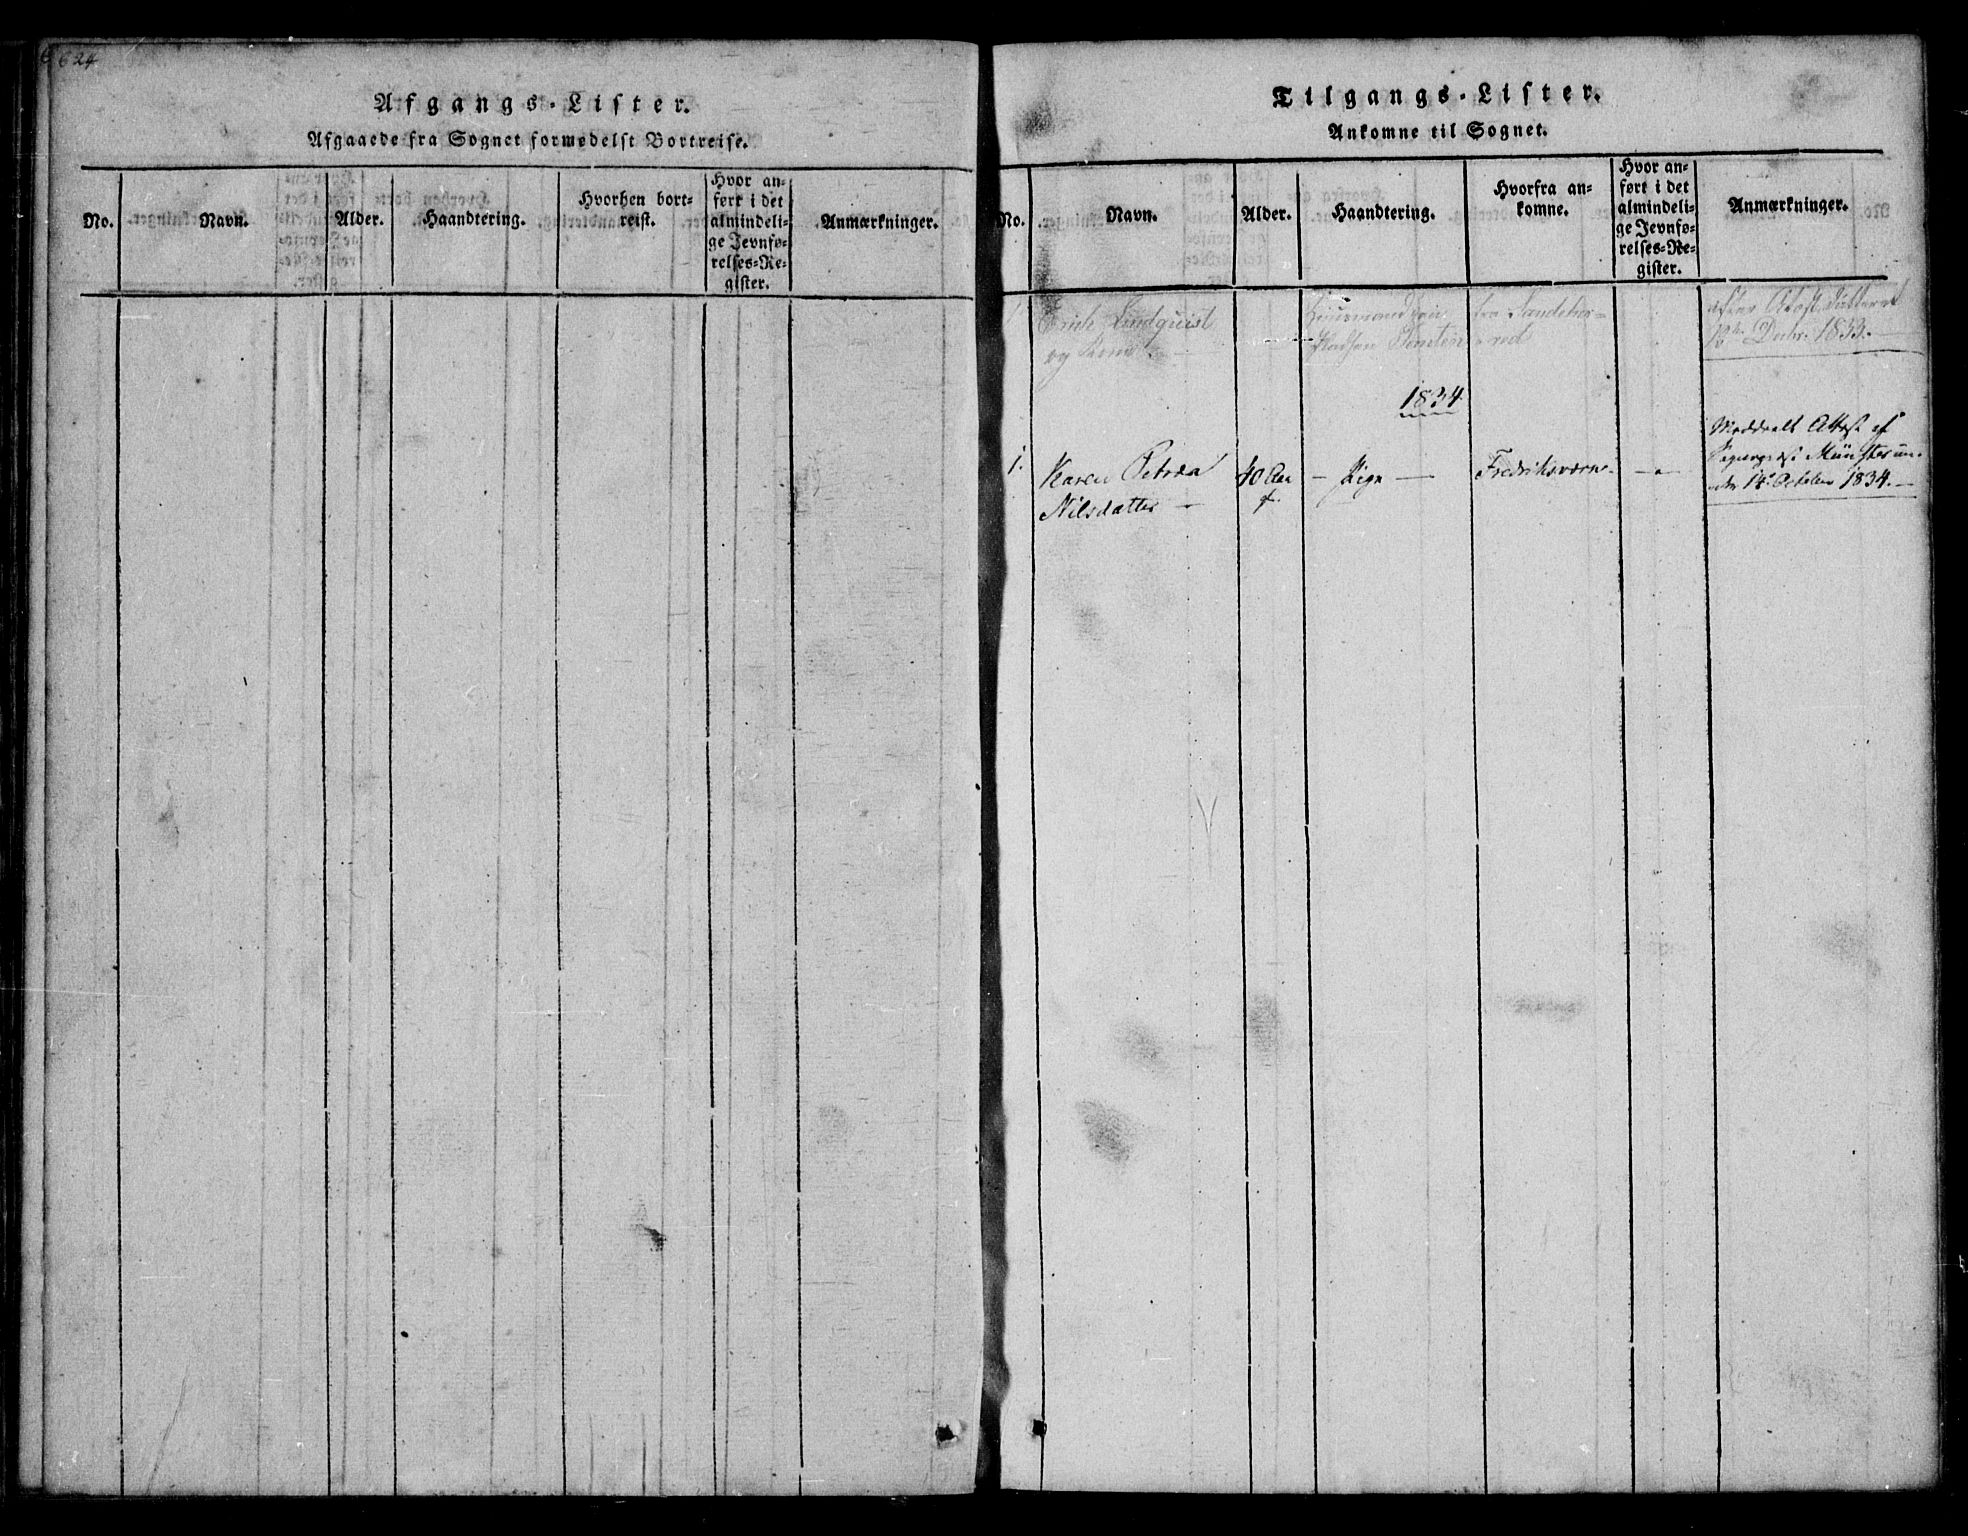 624
Afgangs-Lister.
Afgaaede fra Sognet formedelst Bortreise.
No.
Navn.
Alder.
Haandtering.
Hvorhen bort-
reist.
Hvor an-
ført i det
almindeli-
ge Jevnfø-
relses-Re-
gister.
Anmærkninger.
Tilgangs-Lister.
Ankomne til Sognet.
No.
Navn.
Alder.
Haandtering.
Hvorfra an-
komne.
Hvor an-
ført i det
almindeli-
ge Jevnfø-
relses-Re-
gister.
Anmærkninger.
Lindquist
og Kone
Huusmand
Pladsen
fra Sandeher-
red
efter Attest dateret
Decbr. 1833.
1834.
1.
Karen Petrea
Nilsdatter -
40 Aar
- Pige -
Fredriksværn -
Meddeelt Attest af
Münster un-
der October 1834. -